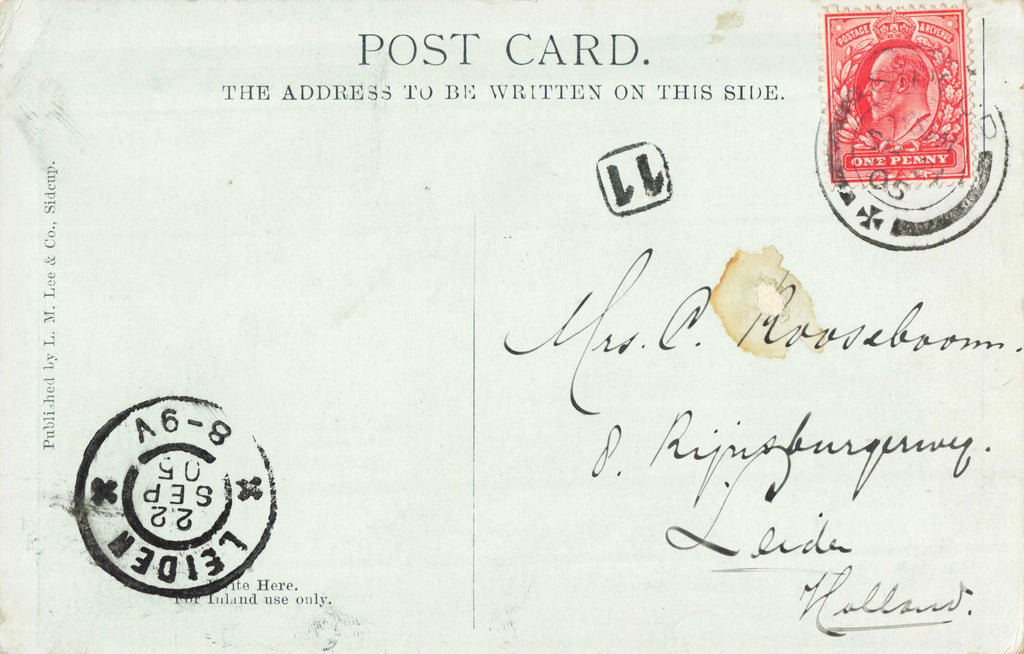 POST CARD.
THE ADDRESS TO BE WRITTEN ON THIS SIDE.
POSTAGE & REVENUE
ONE PENNY
SP
05
11
Published by L. M. Lee & Co., Sidcup.
Mrs. C. Rooseboom.
8. Rijnsburgerweg.
Leiden
Holland.
LEIDEN
22
SEP
05
8-9V
Write Here.
For Inland use only.